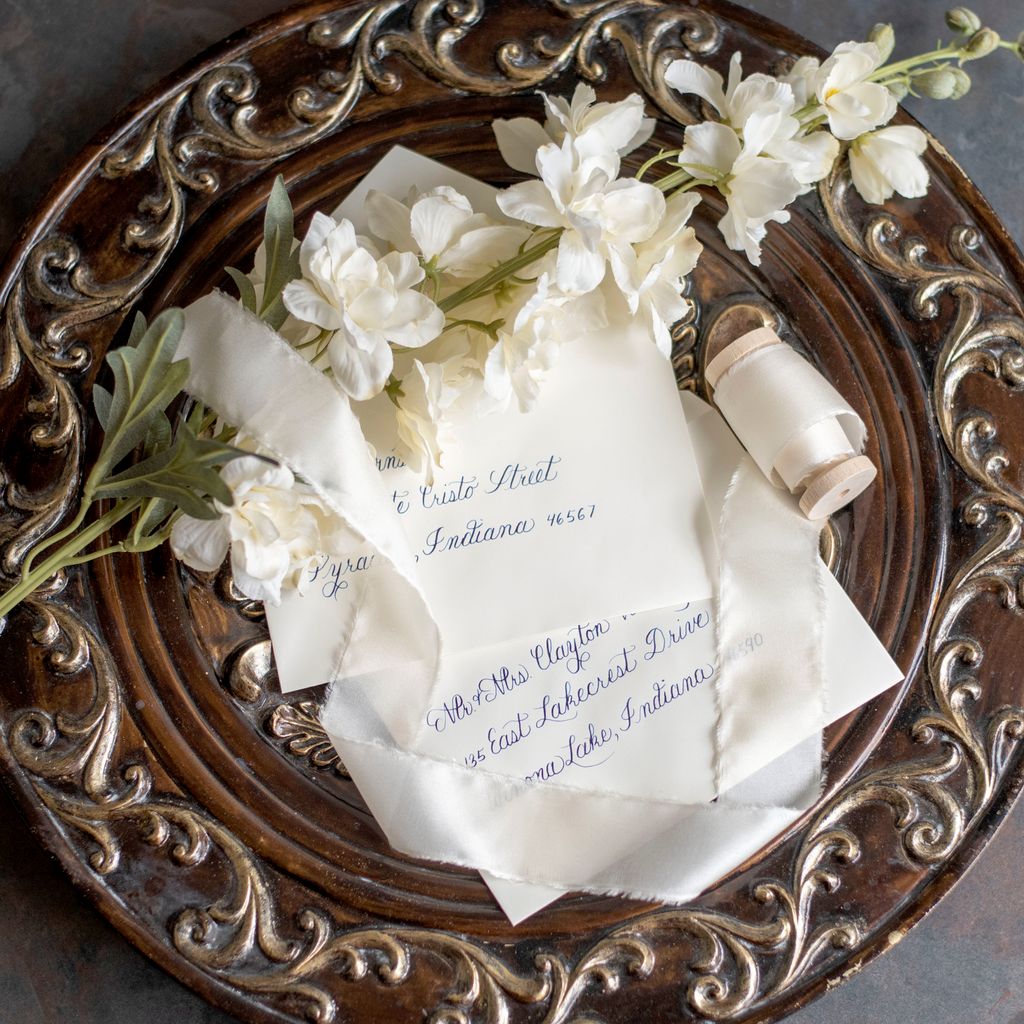 Cristo Street
Indiana 46567
Mr. & Mrs. Clayton
135 East Lakecrest Drive
Lake, Indiana 46590